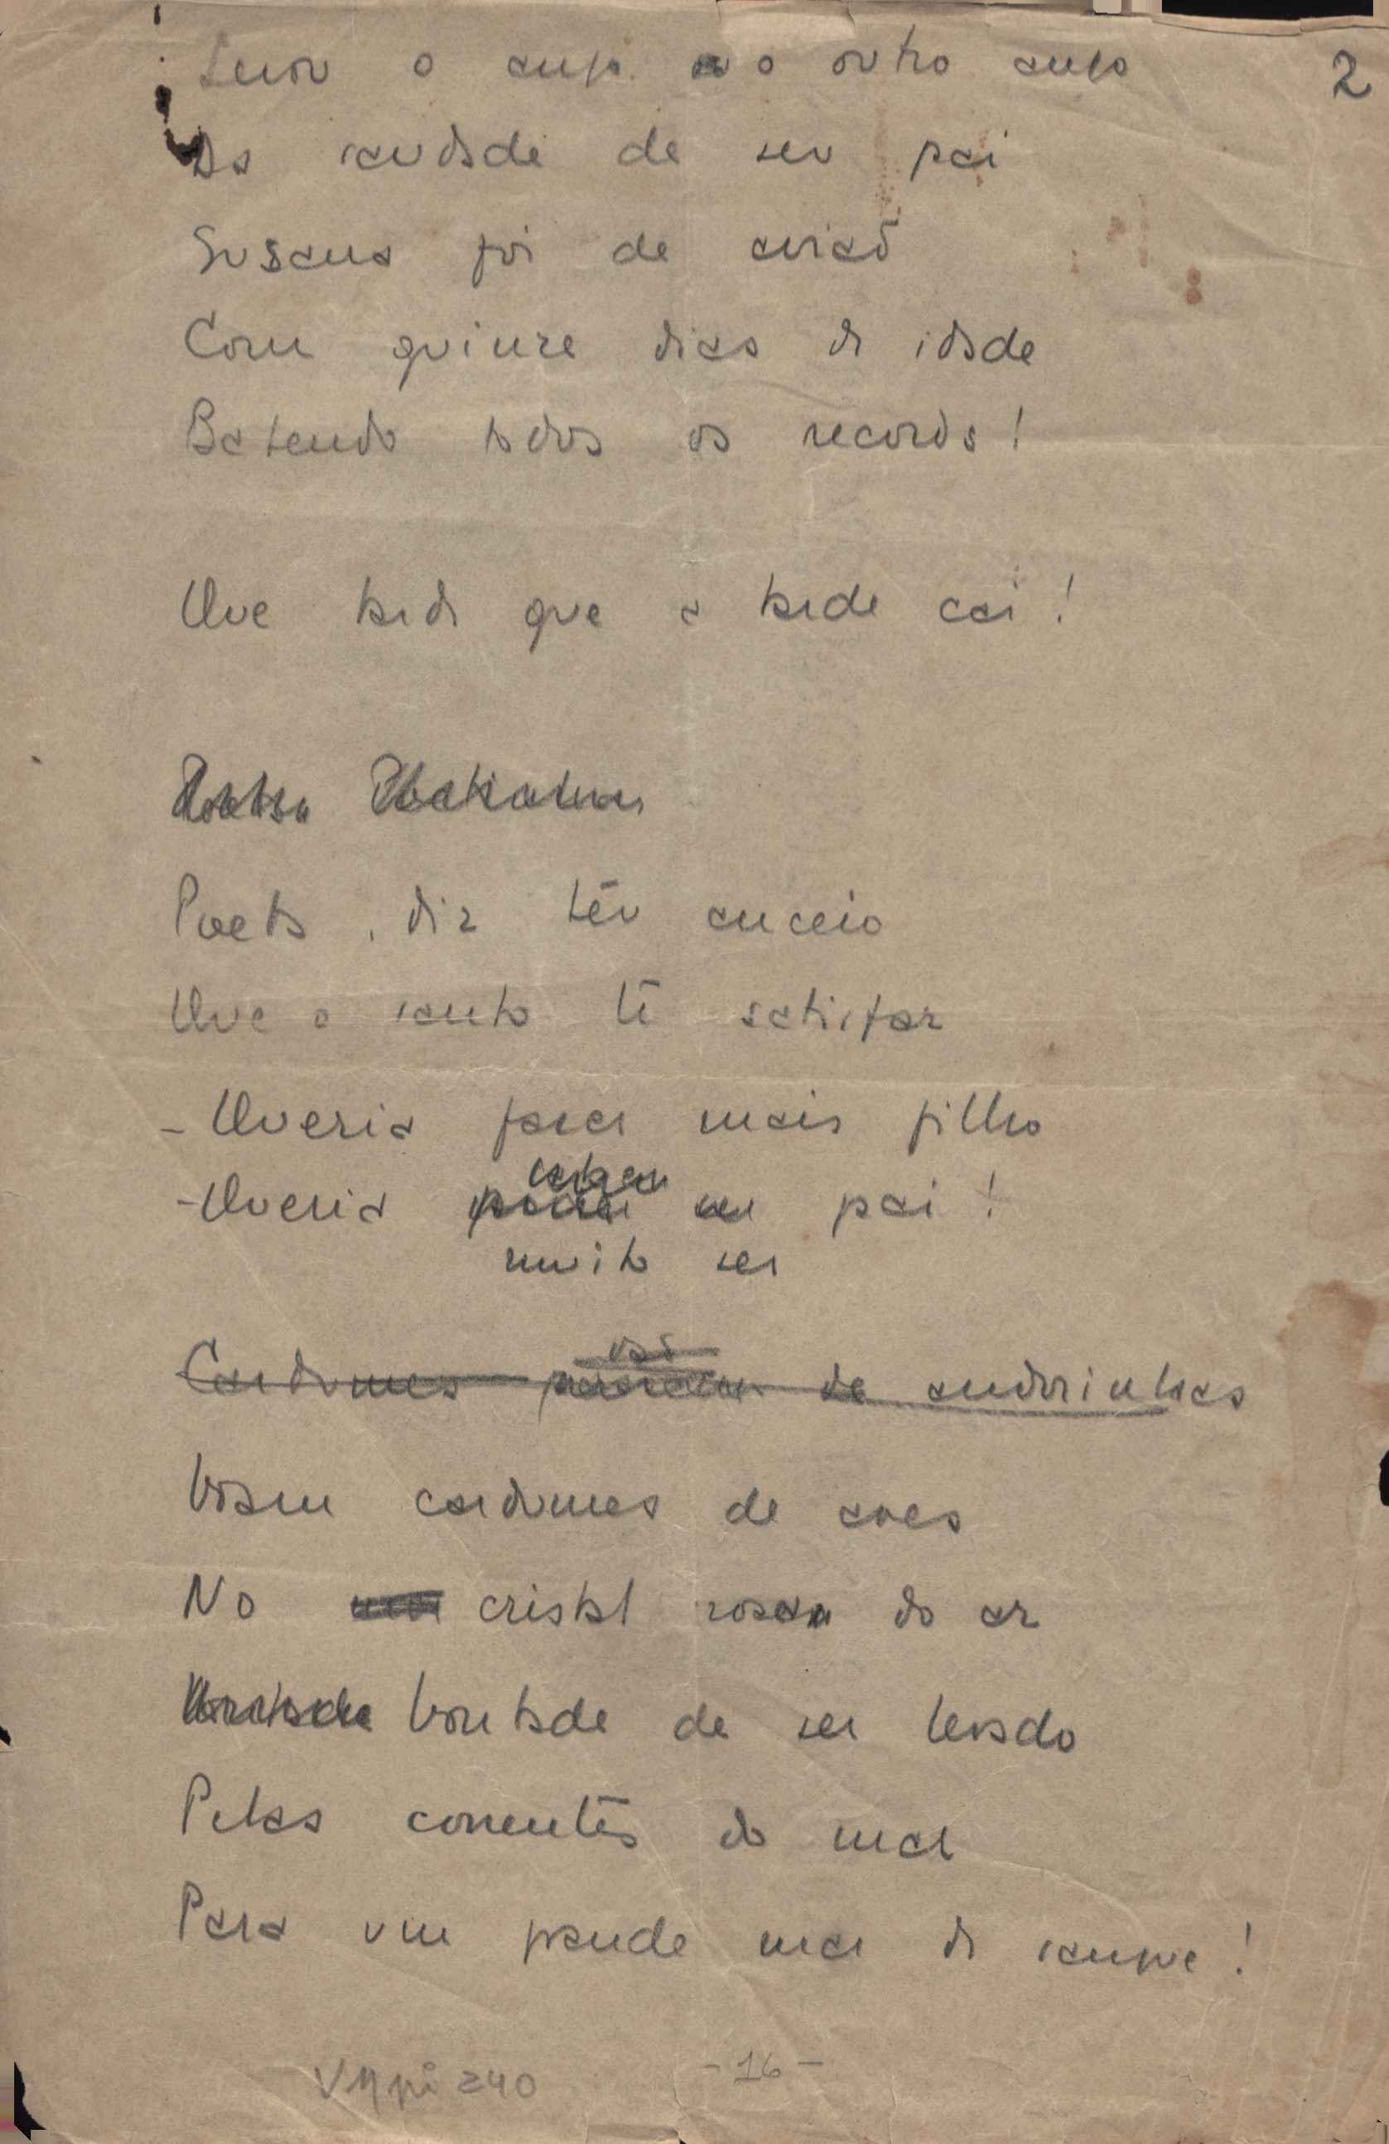 Levou o anjo ao outro anjo
2
Da saudade de seu pai
Susana foi de avião
Com quinze dias de idade
Batendo todos os records!
Que tarde que a tarde cai!
Poeta, diz teu anceio
Que o santo te satisfaz
- Queria fazer mais filho
- Queria ser pai!
muito ser
vão
Cardumes de andorinhas
Voam cardumes de aves
No cristal rosa do ar
Vontade de ser levado
Pelas correntes do mar
Para um grande mar de sangue!
VMpi 240
- 16 -